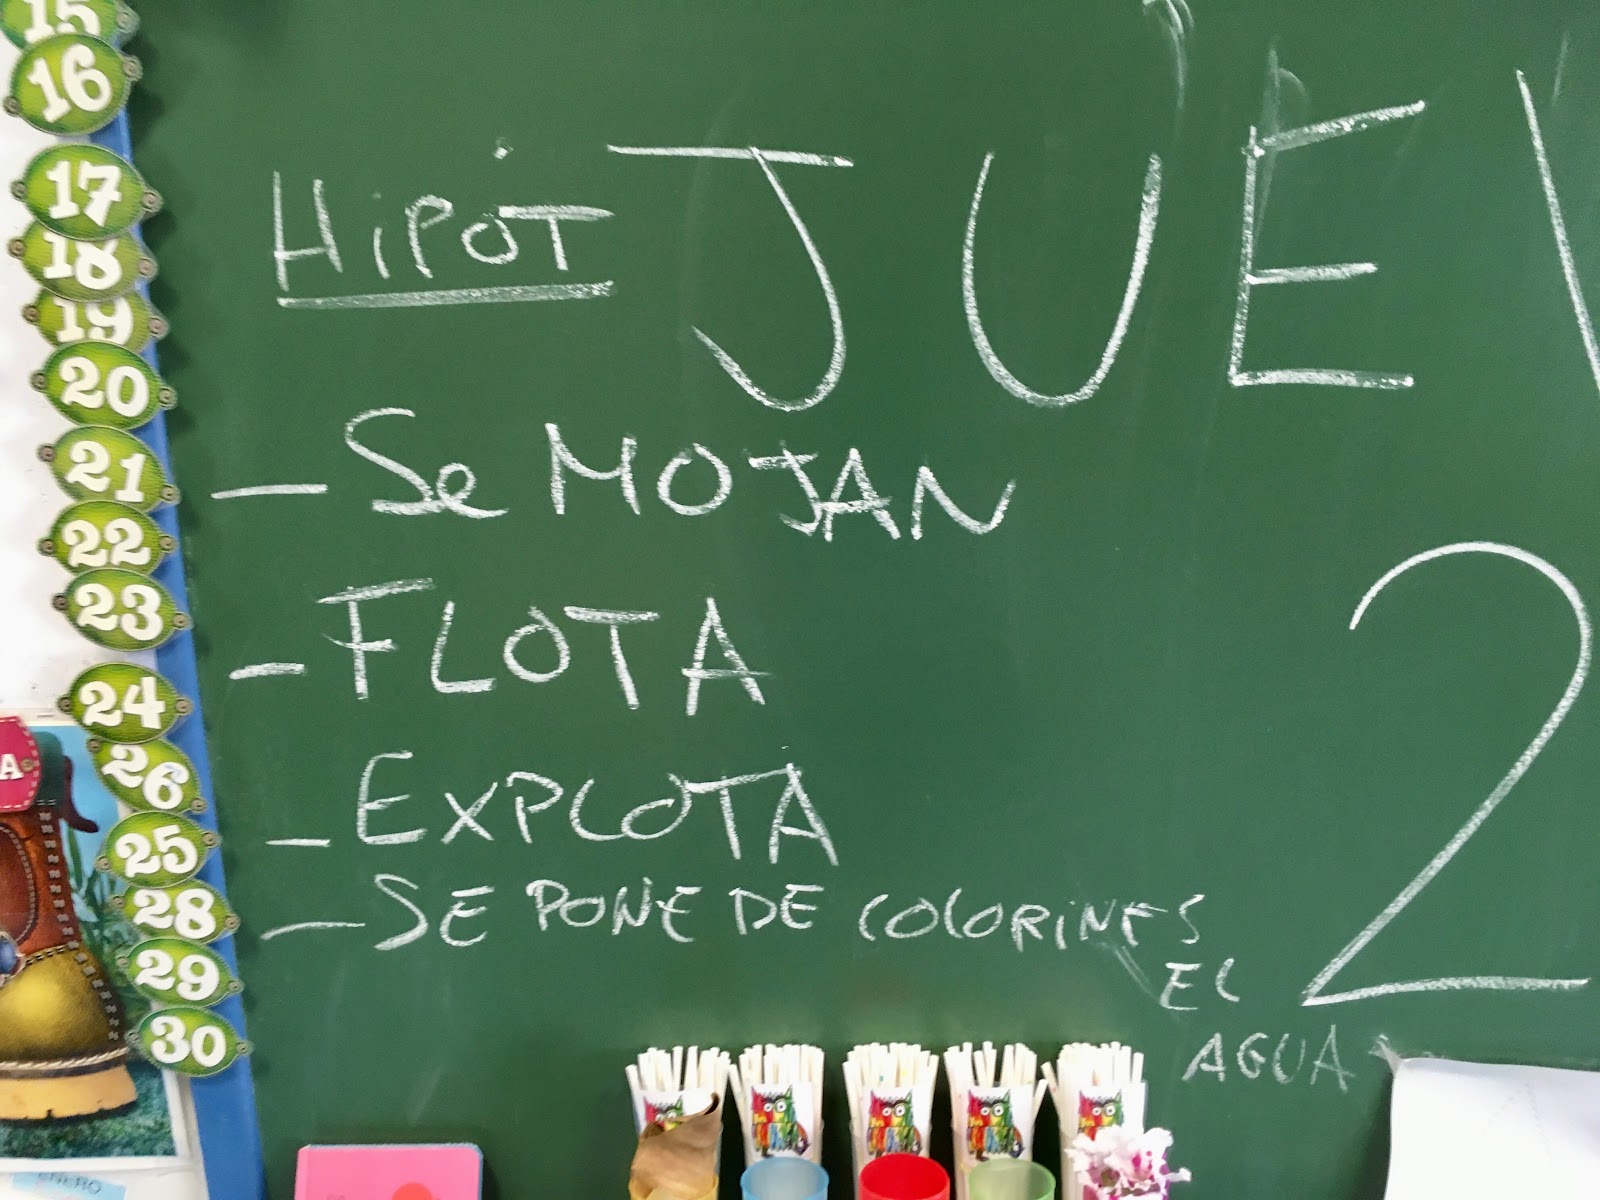 15
16
17
18
19
20
21
22
23
24
26
25
28
29
30
A
ENERO
HiPÓT JUEV
2
- Se MOJAN
- FLOTA
- EXPLOTA
- SE PONE DE COLORINES
EL
AGUA